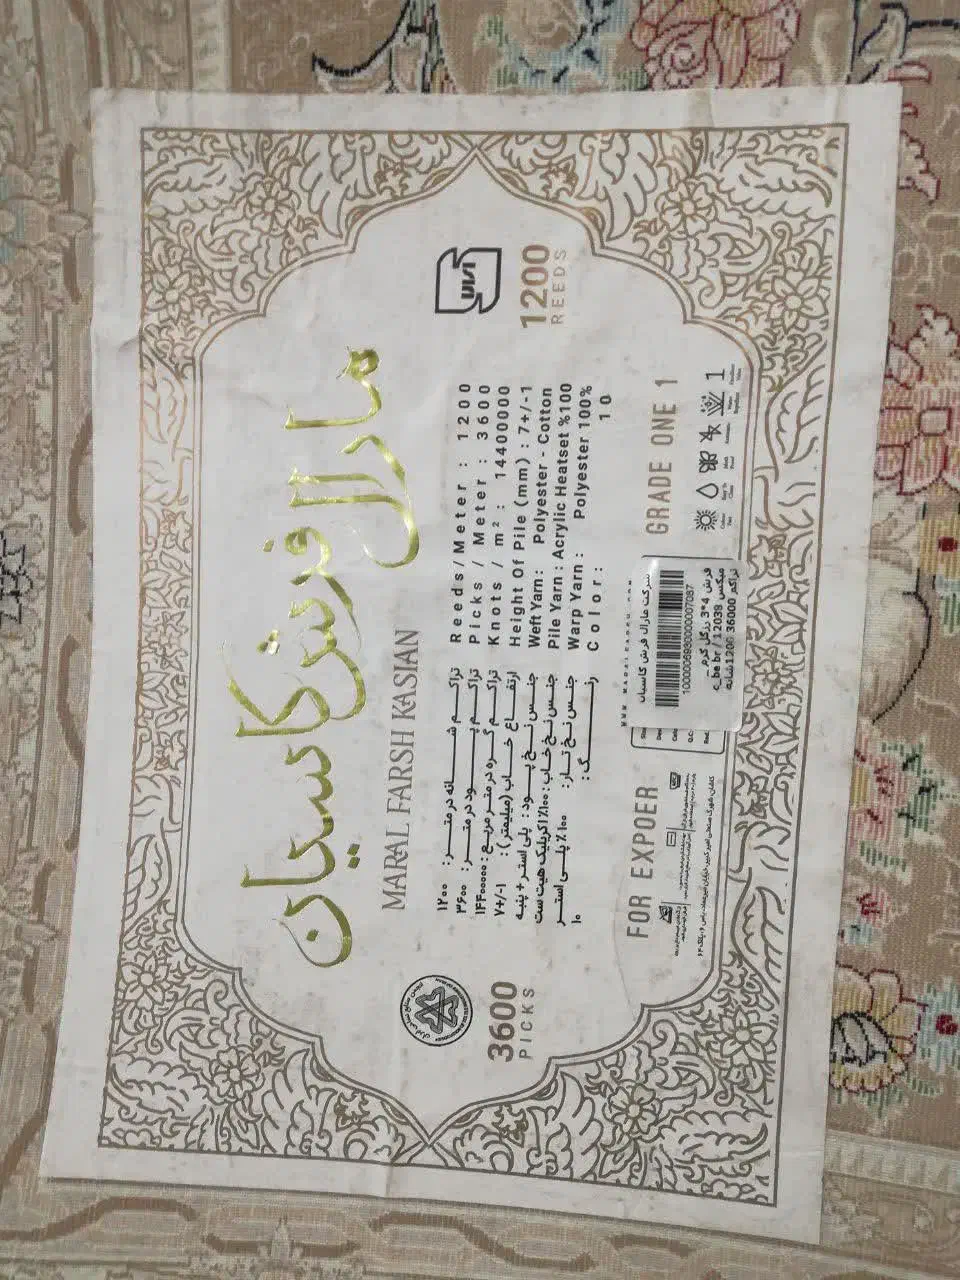 مارال فرش کاسیان
MARAL FARSH KASIAN
1200
REEDS
3600
PICKS
Reeds/Meter : 1200
Picks / Meter : 3600
Knots / m² : 14400000
Height Of Pile (mm) : 7+/-1
Weft Yarn: Polyester - Cotton
Pile Yarn : Acrylic Heatset %100
Warp Yarn : Polyester 100%
Color: 10
تراکم شانه در متر: ۱۲۰۰
تراکم پود در متر: ۳۶۰۰
تراکم گره در متر مربع: ۱۴۴۰۰۰۰۰
ارتفاع خاب (میلیمتر): ۷+/-۱
جنس نخ پود: پلی استر + پنبه
جنس نخ خاب: ۱۰۰٪ اکریلیک هیت ست
جنس نخ تار: ۱۰۰٪ پلی استر
رنگ: ۱۰
FOR EXPOER
GRADE ONE 1
شرکت مارال فرش کاسیان
10000069300000007087
فرش 4*3 رزگل کرم_
میکس 12038 / c_be br
تراکم 36000 1200شانه
کاشان، شهرک صنعتی امیرکبیر،